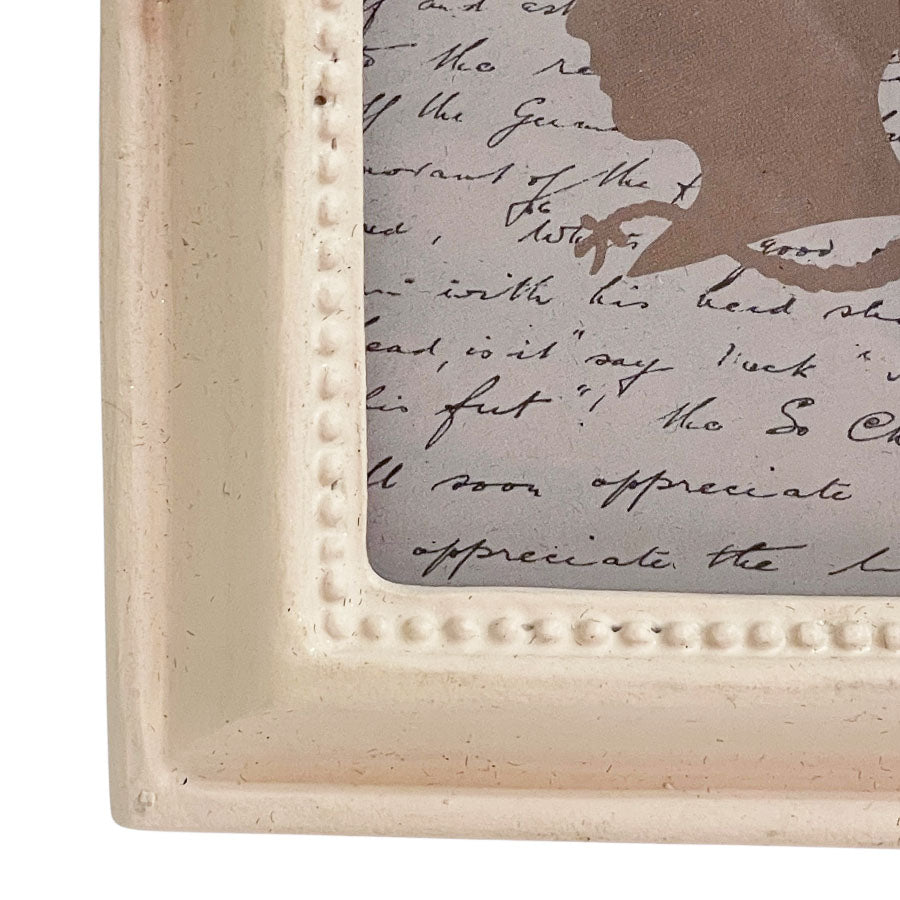 and as
to the re
off the Gu
norant of the f
the
ed, Wh s good
with his head sh
ead, is it "say
his feet"! the So Ch
ll soon appreciate
appreciate the